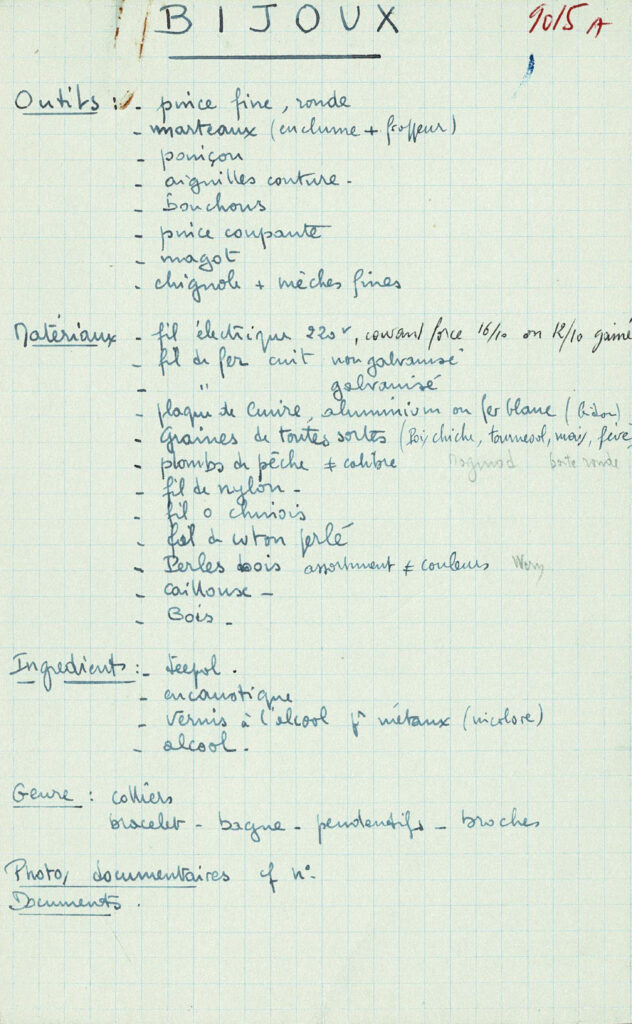 BIJOUX 9015 A
Outils : - pince fine, ronde
- marteaux (enclume + frappeur)
- poniçon
- aiguilles couture.
- bouchons
- pince coupante
- magot
- chignole + mèches fines
Matériaux - fil électrique 220v, courant force 16/10 ou 12/10 gainé
- fil de fer cuit non galvanisé
- " galvanisé
- plaque de cuivre, aluminium ou fer blanc (bidon)
- Graines de toutes sortes (Pois chiche, tournesol, maïs, fève)
- plombs de pêche ≠ calibre boite ronde
- fil de nylon -
- fil o chinois
- fil de coton perlé
- Perles bois assortiment ≠ couleurs
- cailloux -
- Bois -
Ingrédients : - teepol.
- encaustique
- vernis à l'alcool pr métaux (incolore)
- alcool.
Genre : colliers
bracelet - bague - pendentifs - broches
Photo, documentaires cf n°
Documents.